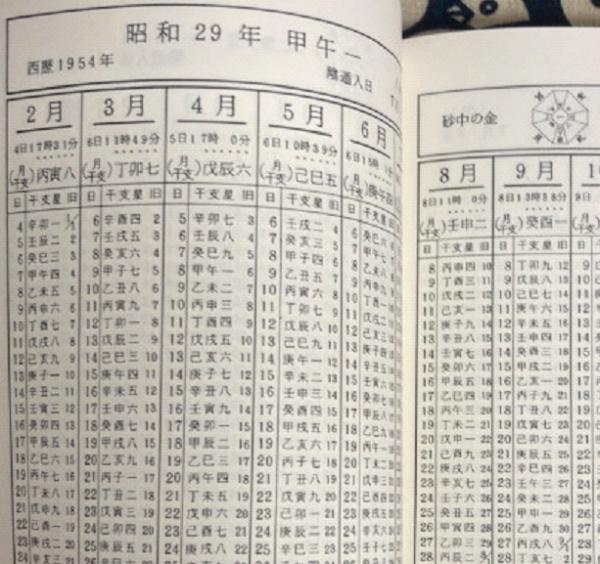 昭和29年 甲午一
西歴1954年
陰遁入日
2月 3月 4月 5月 6月
4日17時31分 6日11時49分 5日17時 0分 6日10時39分 6日15時
(月干支)丙寅八 (月干支)丁卯七 (月干支)戊辰六 (月干支)己巳五 (月干支)庚午四
日 干支星 旧 日 干支星 旧 日 干支星 旧 日 干支星 旧 日 干支星 旧
4 辛卯一 1/1 6 辛酉四 2 5 辛卯七 3 6 壬戌二 4
5 壬辰二 2 7 壬戌五 3 6 壬辰八 4 7 癸亥三 5 6 癸巳六
6 癸巳三 3 8 癸亥六 4 7 癸巳九 5 8 甲子四 6 7 甲午七
7 甲午四 4 9 甲子七 5 8 甲午一 6 9 乙丑五 7 8 乙未八
8 乙未五 5 10 乙丑八 6 9 乙未二 7 10 丙寅六 8 9 丙申九
9 丙申六 6 11 丙寅九 7 10 丙申三 8 11 丁卯七 9 10 丁酉一
10 丁酉七 7 12 丁卯一 8 11 丁酉四 9 12 戊辰八 10 11 戊戌二
11 戊戌八 8 13 戊辰二 9 12 戊戌五 10 13 己巳九 11 12 己亥三
12 己亥九 9 14 己巳三 10 13 己亥六 11 14 庚午一 12 13 庚子四
13 庚子一 10 15 庚午四 11 14 庚子七 12 15 辛未二 13 14 辛丑五
14 辛丑二 11 16 辛未五 12 15 辛丑八 13 16 壬申三 14 15 壬寅六
15 壬寅三 12 17 壬申六 13 16 壬寅九 14 17 癸酉四 15 16 癸卯七
16 癸卯四 13 18 癸酉七 14 17 癸卯一 15 18 甲戌五 16 17 甲辰八
17 甲辰五 14 19 甲戌八 15 18 甲辰二 16 19 乙亥六 17 18 乙巳九
18 乙巳六 15 20 乙亥九 16 19 乙巳三 17 20 丙子七 18 19 丙午一
19 丙午七 16 21 丙子一 17 20 丙午四 18 21 丁丑八 19 20 丁未二
20 丁未八 17 22 丁丑二 18 21 丁未五 19 22 戊寅九 20 21 戊申三
21 戊申九 18 23 戊寅三 19 22 戊申六 20 23 己卯一 21 22 己酉四
22 己酉一 19 24 己卯四 20 23 己酉七 21 24 庚辰二 22 23 庚戌五
23 庚戌二 20 25 庚辰五 21 24 庚戌八 22 25 辛巳三 23 24 辛亥六
砂中の金
8月 9月
8日11時 0分 8日13時38分
(月干支)壬申二 (月干支)癸酉一
日 干支星 旧 日 干支星 旧
8 丙申四 10 8 丁卯九 12
9 丁酉三 11 9 戊辰八 13
10 戊戌二 12 10 己巳七 14
11 己亥一 13 11 庚午六 15
12 庚子九 14 12 辛未五 16
13 辛丑八 15 13 壬申四 17
14 壬寅七 16 14 癸酉三 18
15 癸卯六 17 15 甲戌二 19
16 甲辰五 18 16 乙亥一 20
17 乙巳四 19 17 丙子九 21
18 丙午三 20 18 丁丑八 22
19 丁未二 21 19 戊寅七 23
20 戊申一 22 20 己卯六 24
21 己酉九 23 21 庚辰五 25
22 庚戌八 24 22 辛巳四 26
23 辛亥七 25 23 壬午三 27
24 壬子六 26 24 癸未二 28
25 癸丑五 27 25 甲申一 29
26 甲寅四 28 26 乙酉九 30
27 乙卯三 29 27 丙戌八
28 丙辰二 28 丁亥七 2